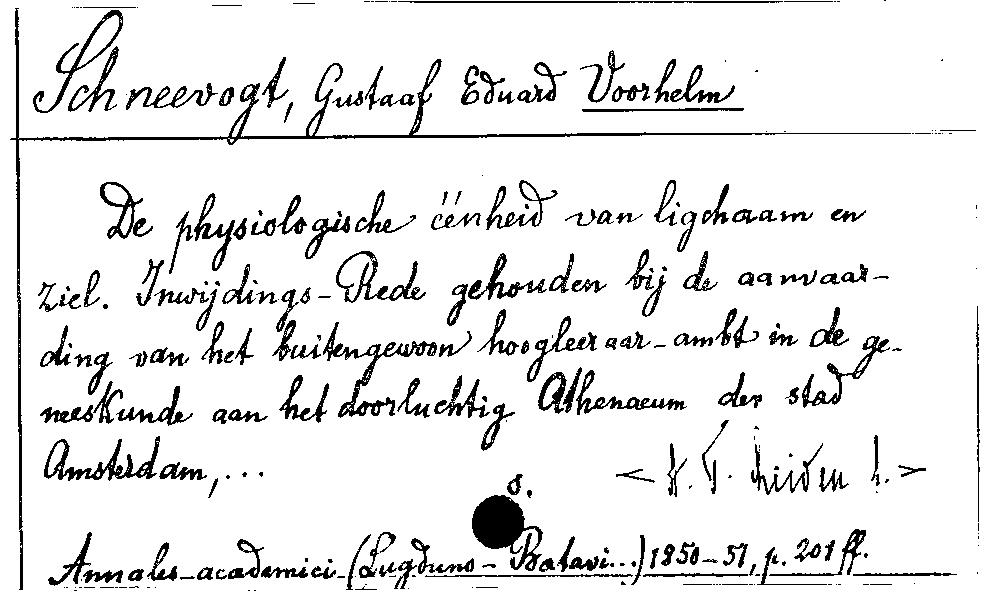 Schneevogt, Gustaaf Eduard Voorhelm
De physiologische éénheid van ligchaam en
ziel. Inwijdings-Rede gehouden bij de aanvaar-
ding van het buitengewoon hoogleeraar-ambt in de ge-
neeskunde aan het doorluchtig Athenaeum der stad
Amsterdam,...
s.
Annales academici (Lugduno-Batavi...) 1850-51, p. 201 ff.